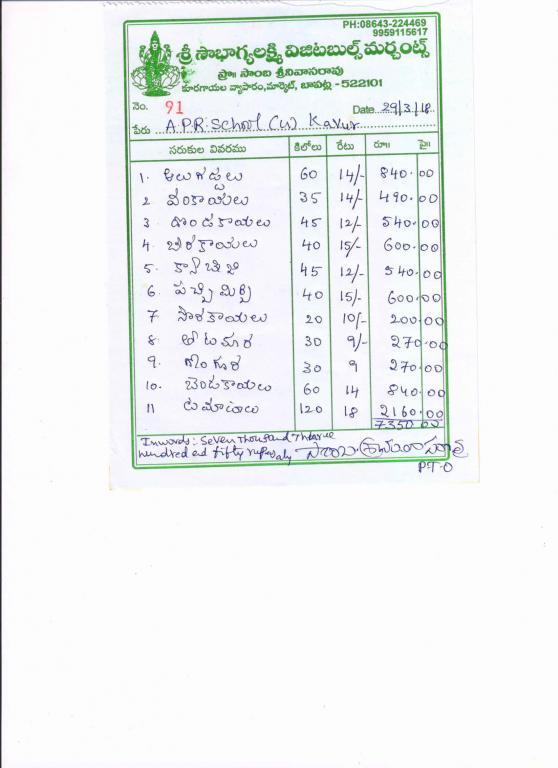 PH:08643-224469
9959115617
శ్రీ సౌభాగ్యలక్ష్మి విజిటబుల్స్ మర్చంట్స్
ప్రొ॥ సాంబ శ్రీనివాసరావు
కూరగాయల వ్యాపారం, మార్కెట్, బాపట్ల - 522101
నెం. 91 Date 29/3/18.
పేరు A.P.R. School (u) Kavur
సరుకుల వివరము కిలోలు రేటు రూ॥ పై॥
1. ఆలుగడ్డలు 60 14/- 840.00
2 వంకాయలు 35 14/- 490.00
3 దొండకాయలు 45 12/- 540.00
4. బీరకాయలు 40 15/- 600.00
5. క్యాబేజి 45 12/- 540.00
6. పచ్చిమిర్చి 40 15/- 600.00
7 సొరకాయలు 20 10/- 200.00
8 తోటకూర 30 9/- 270.00
9. గోంగూర 30 9 270.00
10. బెండకాయలు 60 14 840.00
11 టమాటాలు 120 18 2160.00
7350 00
Inwords:- Seven Thousand Tharee
hundred and fifty rupees only
P.T.O